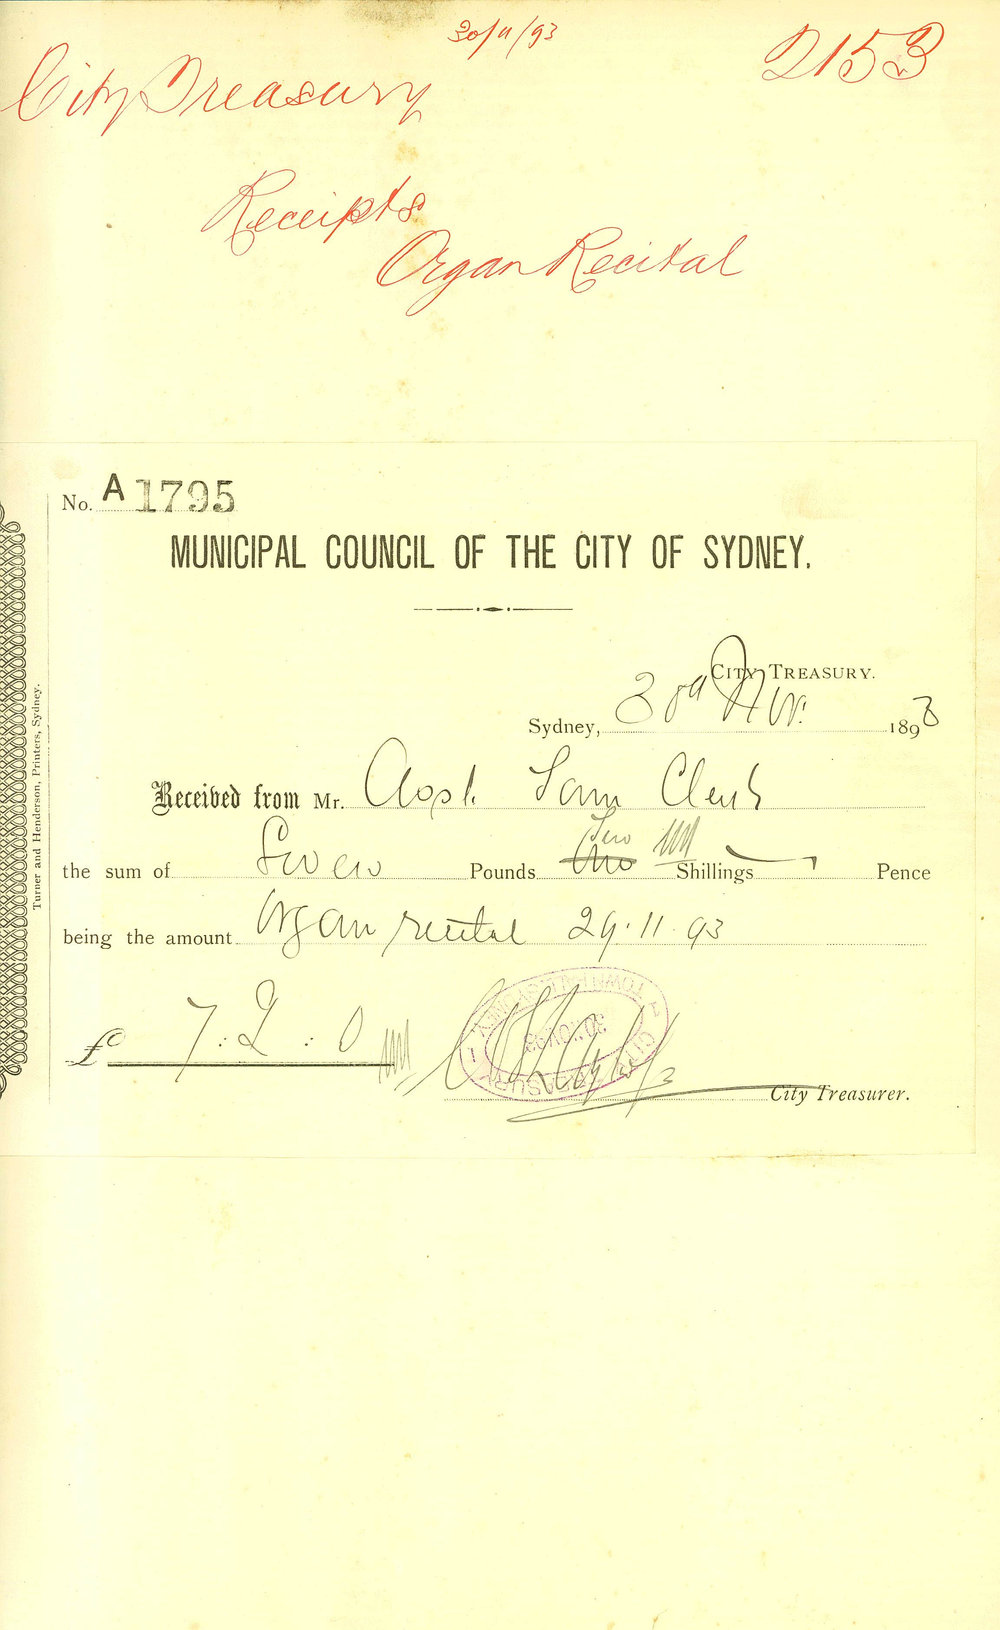 30/11/93
2153
City Treasury
Receipts
Organ Recital
No. A 1795
MUNICIPAL COUNCIL OF THE CITY OF SYDNEY.
CITY TREASURY.
Sydney, 30th Nov. 1893
Received from Mr. Asst. Town Clerk
Two
the sum of Seven Pounds Shillings Pence
being the amount Organ recital 29.11.93
£ 7:2:0
City Treasurer.
Turner and Henderson, Printers, Sydney.